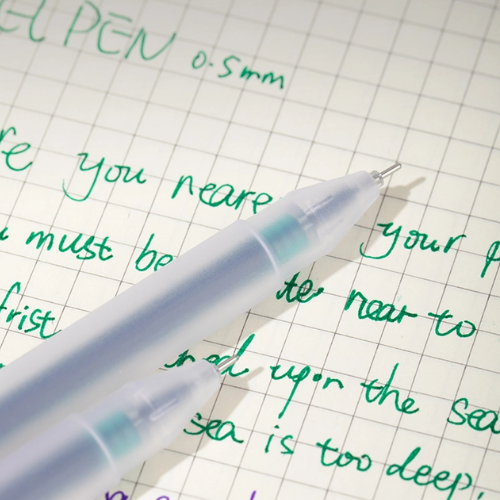 EL PEN 0.5mm
you neare your
must be te near to
frist
ned upon the sea
sea is too deep.